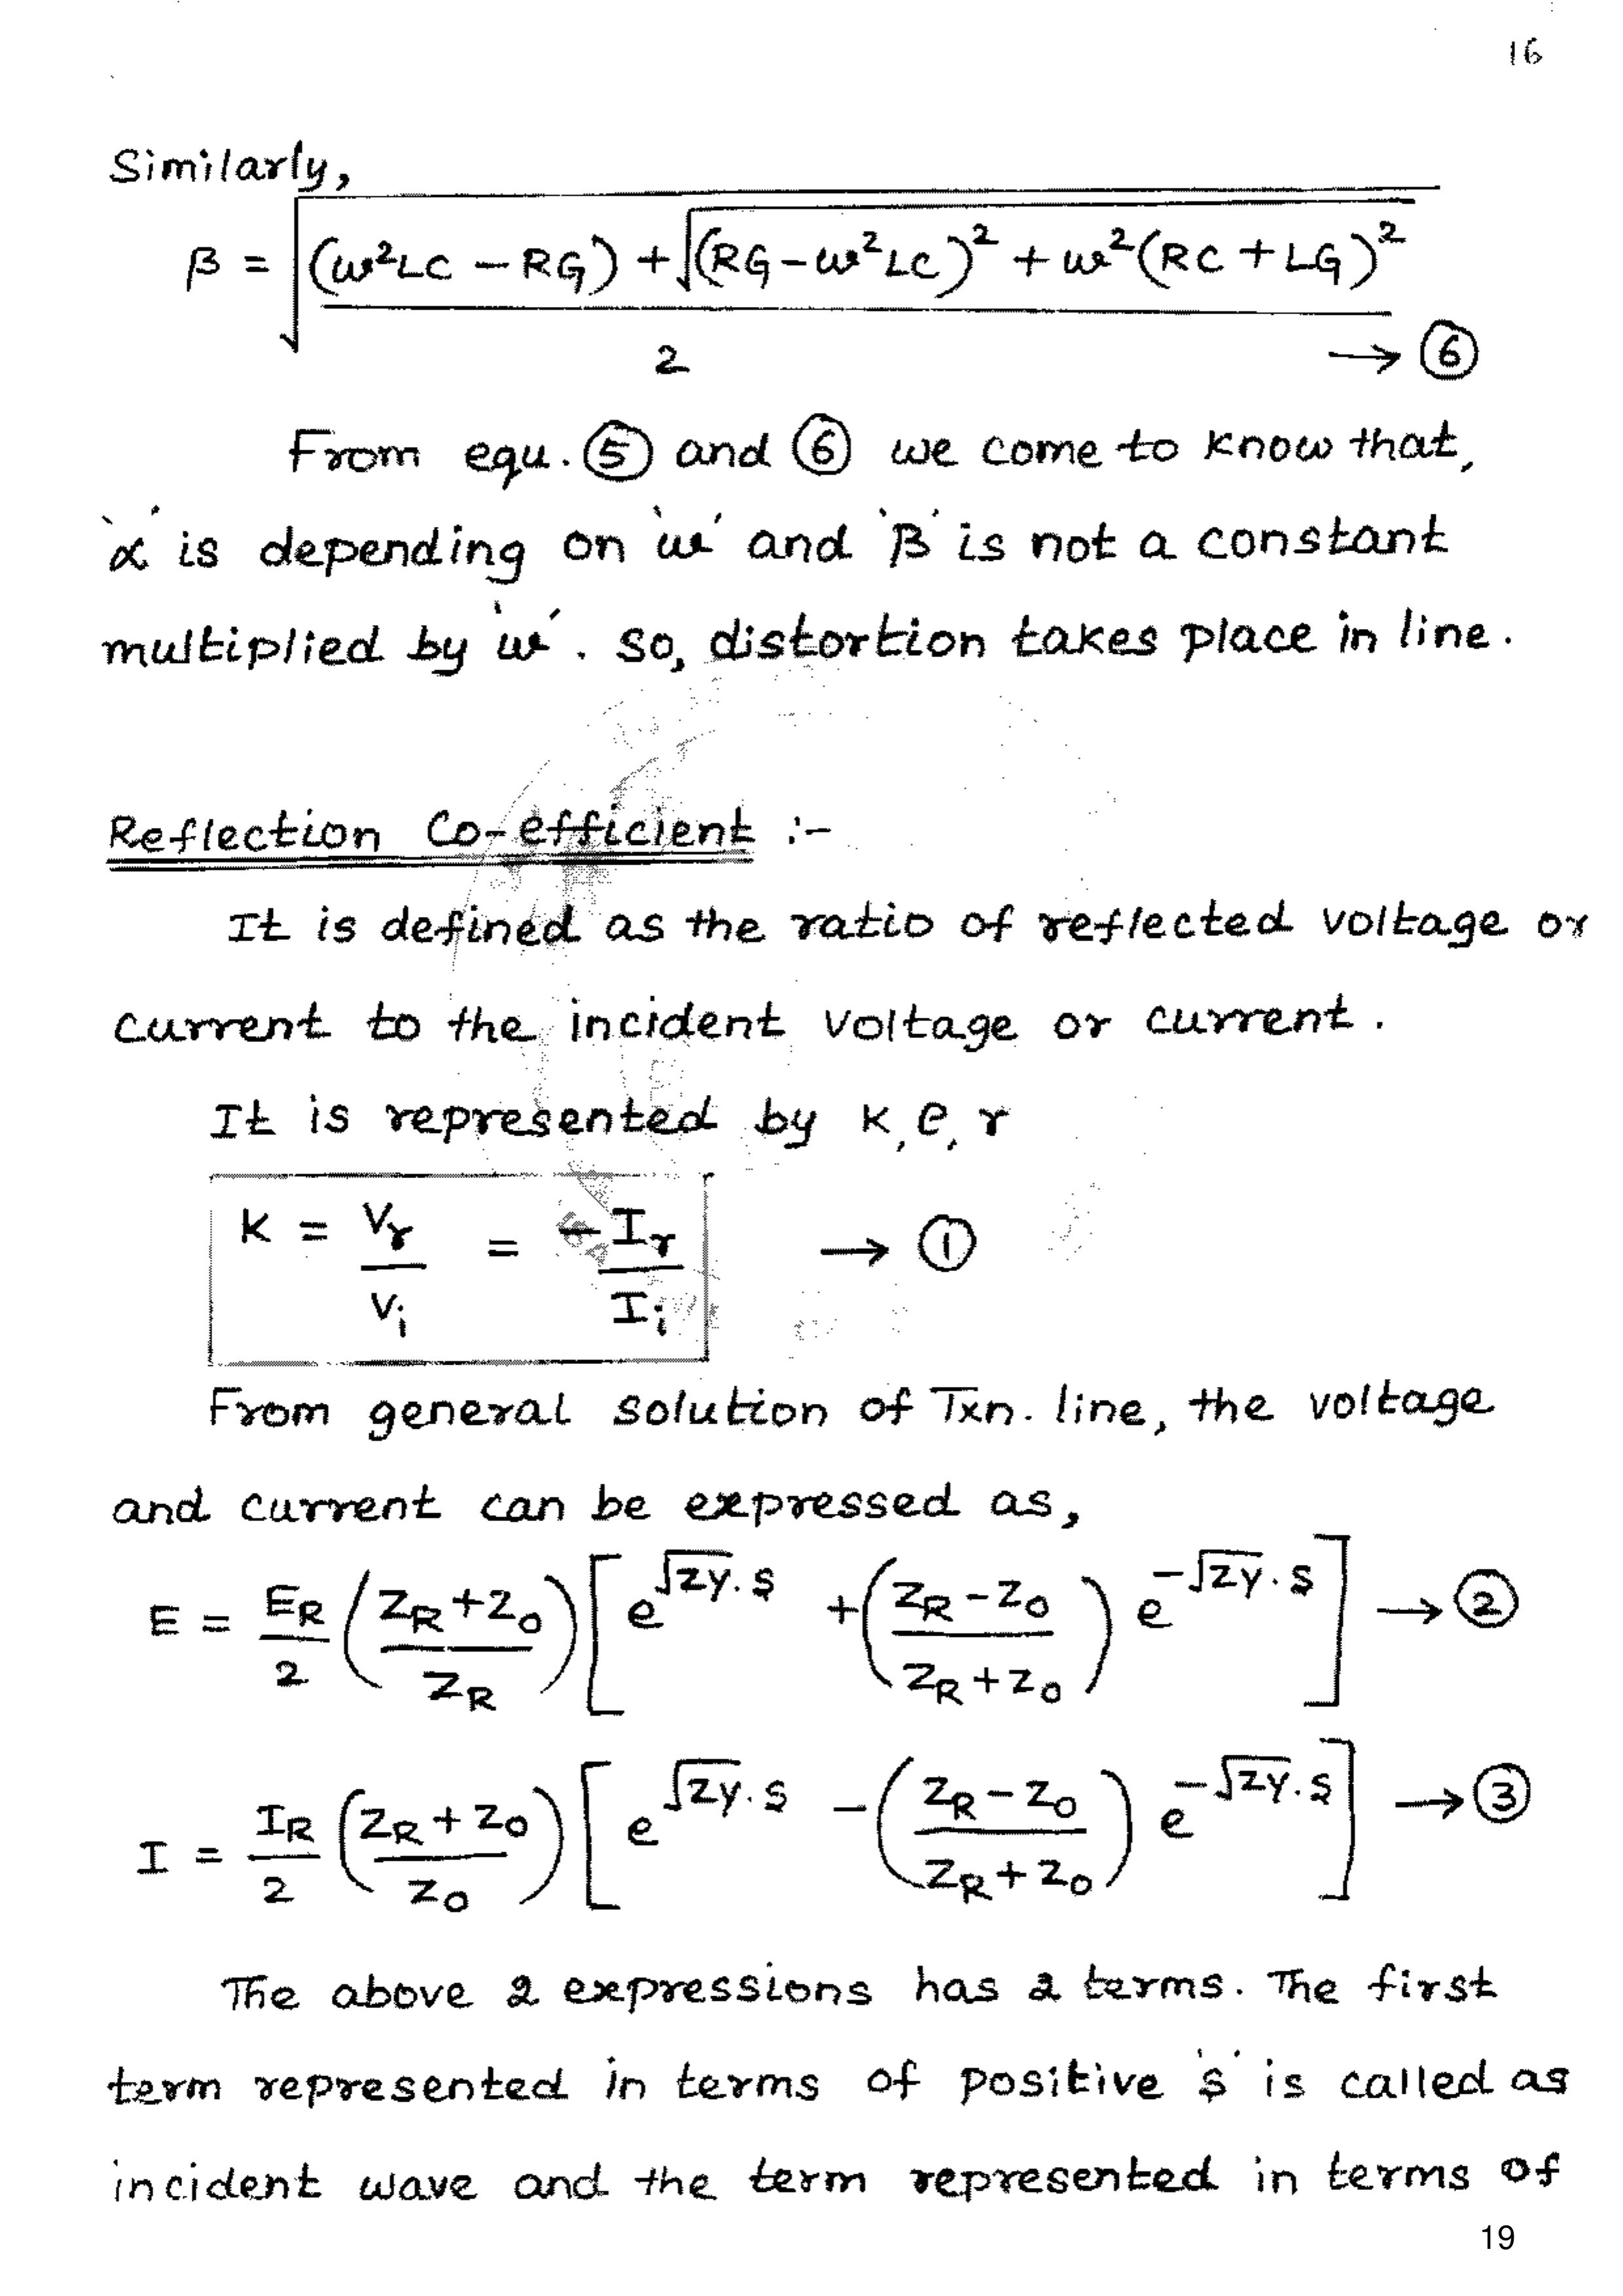 16
Similarly,
β = √(((ω²LC − RG) + √((RG − ω²LC)² + ω²(RC + LG)²)) / 2) → ⑥
From equ. ⑤ and ⑥ we come to know that,
'α' is depending on 'ω' and 'β' is not a constant
multiplied by 'ω'. So, distortion takes place in line.
Reflection Co-efficient :-
It is defined as the ratio of reflected voltage or
current to the incident voltage or current.
It is represented by K, ρ, r
K = Vr / Vi = −Ir / Ii → ①
From general solution of Txn. line, the voltage
and current can be expressed as,
E = ER/2 ((ZR + Z0) / ZR) [e^(√ZY.s) + ((ZR − Z0) / (ZR + Z0)) e^(−√ZY.s)] → ②
I = IR/2 ((ZR + Z0) / Z0) [e^(√ZY.s) − ((ZR − Z0) / (ZR + Z0)) e^(−√ZY.s)] → ③
The above 2 expressions has 2 terms. The first
term represented in terms of positive 's' is called as
incident wave and the term represented in terms of
19